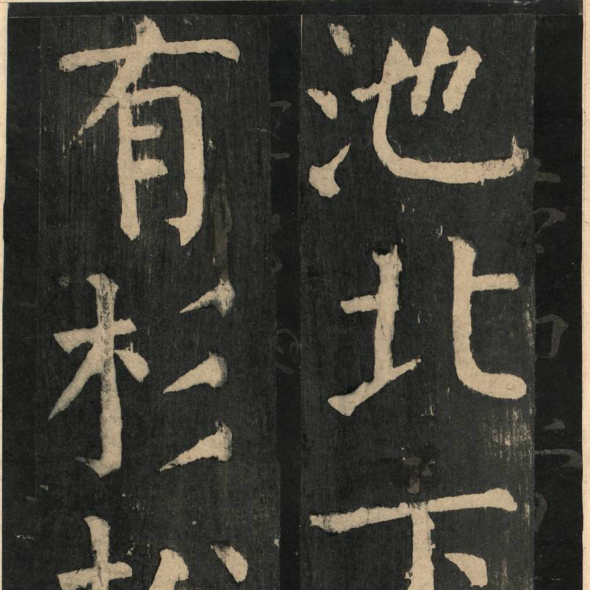 池北下
有杉松